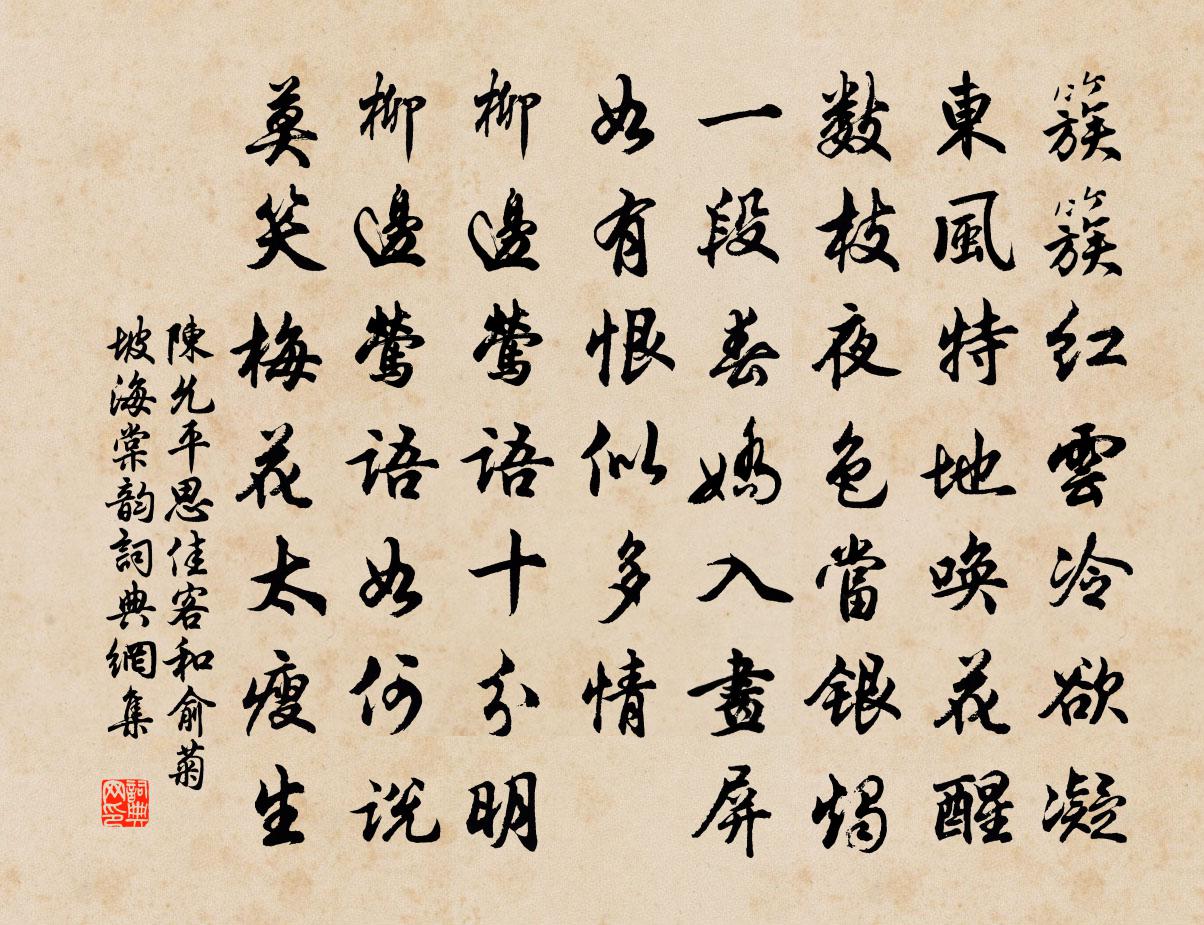 簇簇紅雲冷欲凝
東風特地喚花醒
數枝夜色當銀燭
一段春嬌入畫屏
如有恨似多情
柳邊鶯語十分明
柳邊鶯語如何說
莫笑梅花太瘦生
陳允平思佳客和俞菊
坡海棠韵詞典網集
詞典网印